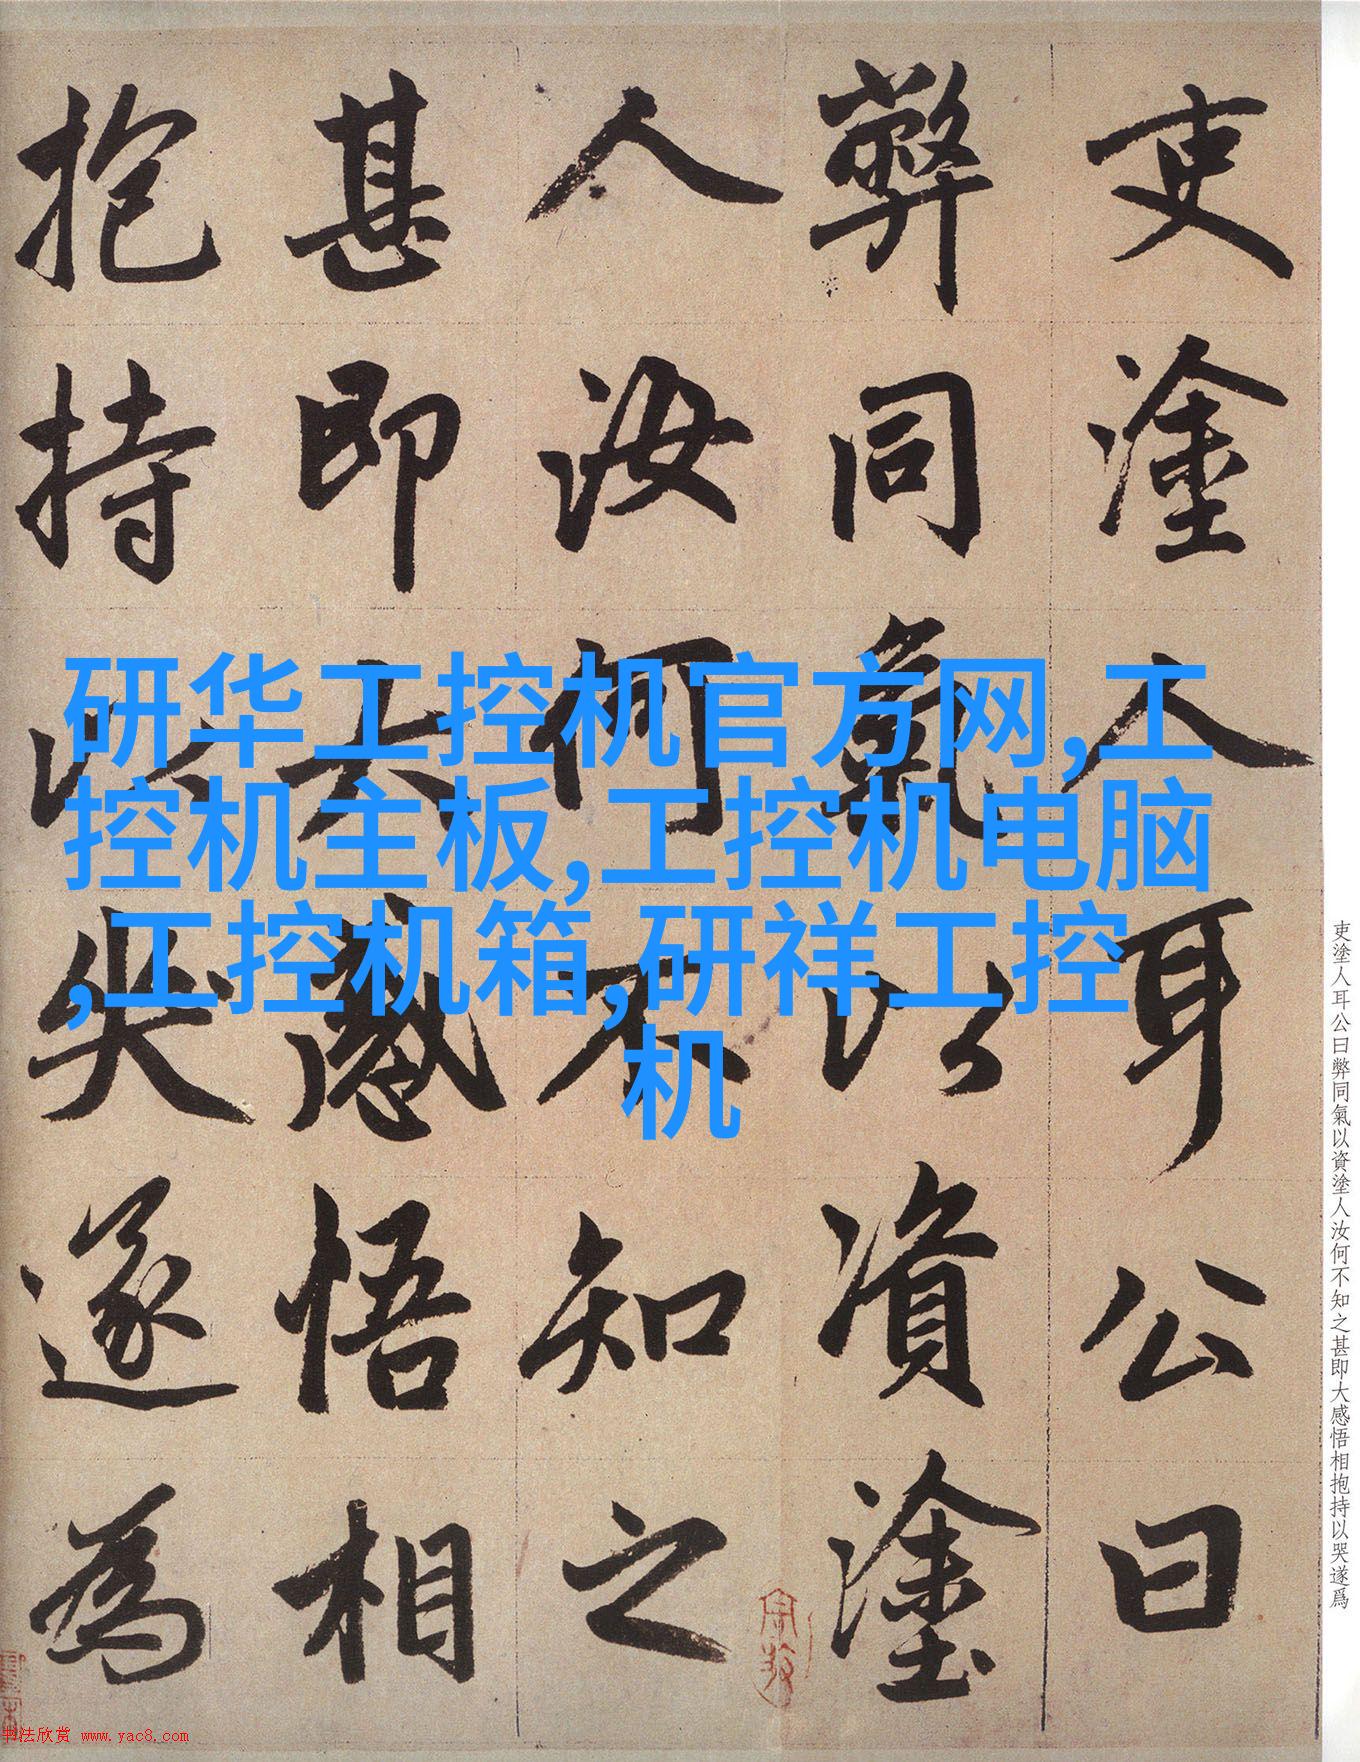 吏塗人耳公曰
弊同氣以資塗
人汝何不知之
甚即大感悟相
抱持以哭遂爲
研华工控机官方网,工
控机主板,工控机电脑
,工控机箱,研祥工控
机
吏塗人耳公曰弊同氣以資塗人汝何不知之甚即大感悟相抱持以哭遂爲
书法欣赏 www.yac8.com